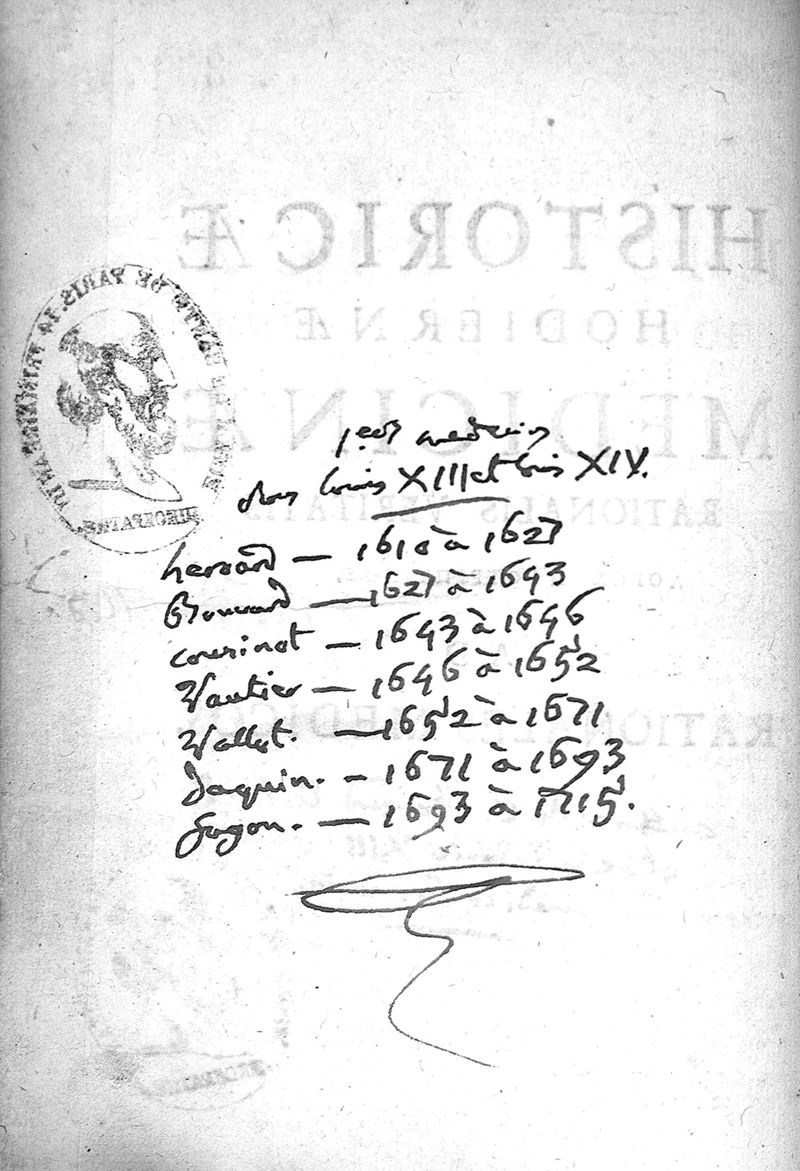 HISTORICÆ
HODIERNÆ
MEDICINÆ
RATIONALIS VERITATIS
DE PARIS
1ers medecins
des Louis XIII et Louis XIV.
heroard — 1610 à 1627
Bouvard — 1627 à 1643
cousinot — 1643 à 1646
Vautier — 1646 à 1652
Vallot. — 1652 à 1671
Daquin. — 1671 à 1693
fagon. — 1693 à 1715.